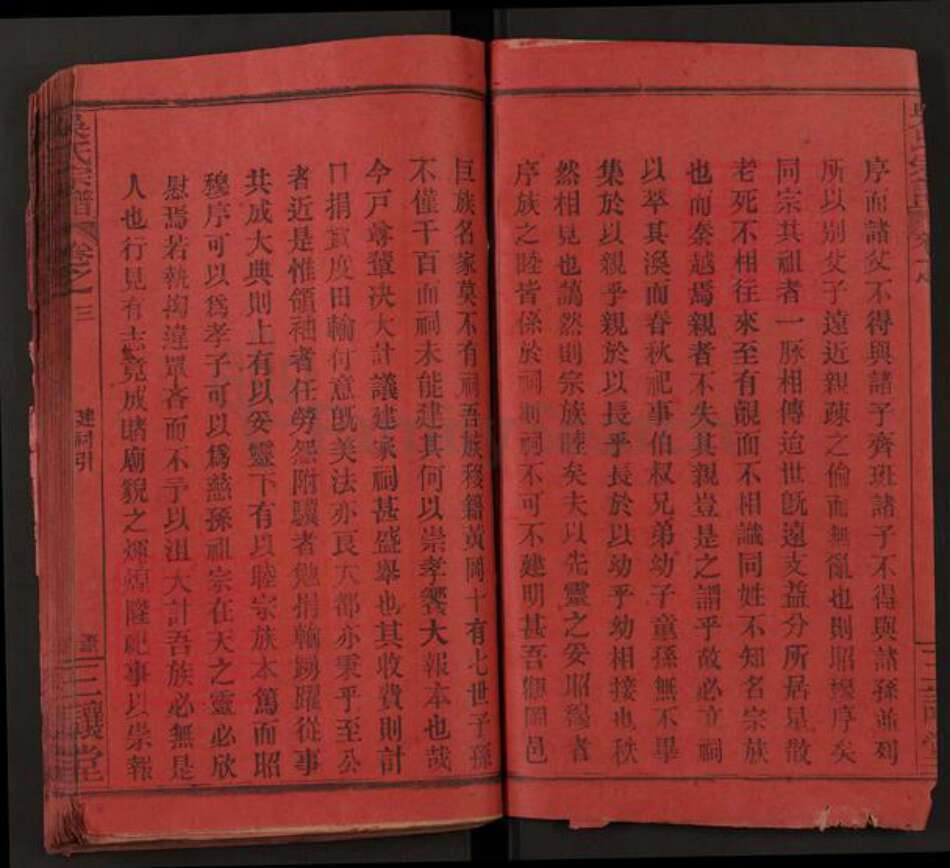 序而諸父不得與諸子齊班諸子不得與諸孫並列
所以別父子遠近親疎之倫而無亂也則昭穆序矣
同宗其祖者一脉相傳迨世旣遠支益分所居星散
老死不相往來至有覿面而不相識同姓不知名宗族
也而秦越焉親者不失其親豈是之謂乎故必立祠
以萃其渙而春秋祀事伯叔兄弟幼子童孫無不畢
集於以親乎親於以長乎長於以幼乎幼相接也秩
然相見也藹然則宗族睦矣夫以先靈之妥昭穆之
序族之睦皆係於祠則祠不可不建明甚吾觀閭邑
巨族名家莫不有祠吾族移籍黃岡十有七世子孫
不僅千百而祠未能建其何以崇孝饗大報本也哉
今戸尊輩決大計議建家祠甚盛舉也其收費則計
口捐貲度田輸何意旣美法亦良大都亦秉乎至公
者近是惟領袖者任勞怨附驥者勉捐輸踴躍從事
共成大典則上有以妥靈下有以睦宗族本篤而昭
穆序可以爲孝子可以爲慈孫祖宗在天之靈必欣
慰焉若執拗違眾吝而不予以沮大計吾族必無是
人也行見有志竟成睹廟貌之輝煌隆祀事以崇報
吳氏宗譜
卷之三
建祠引
三讓堂